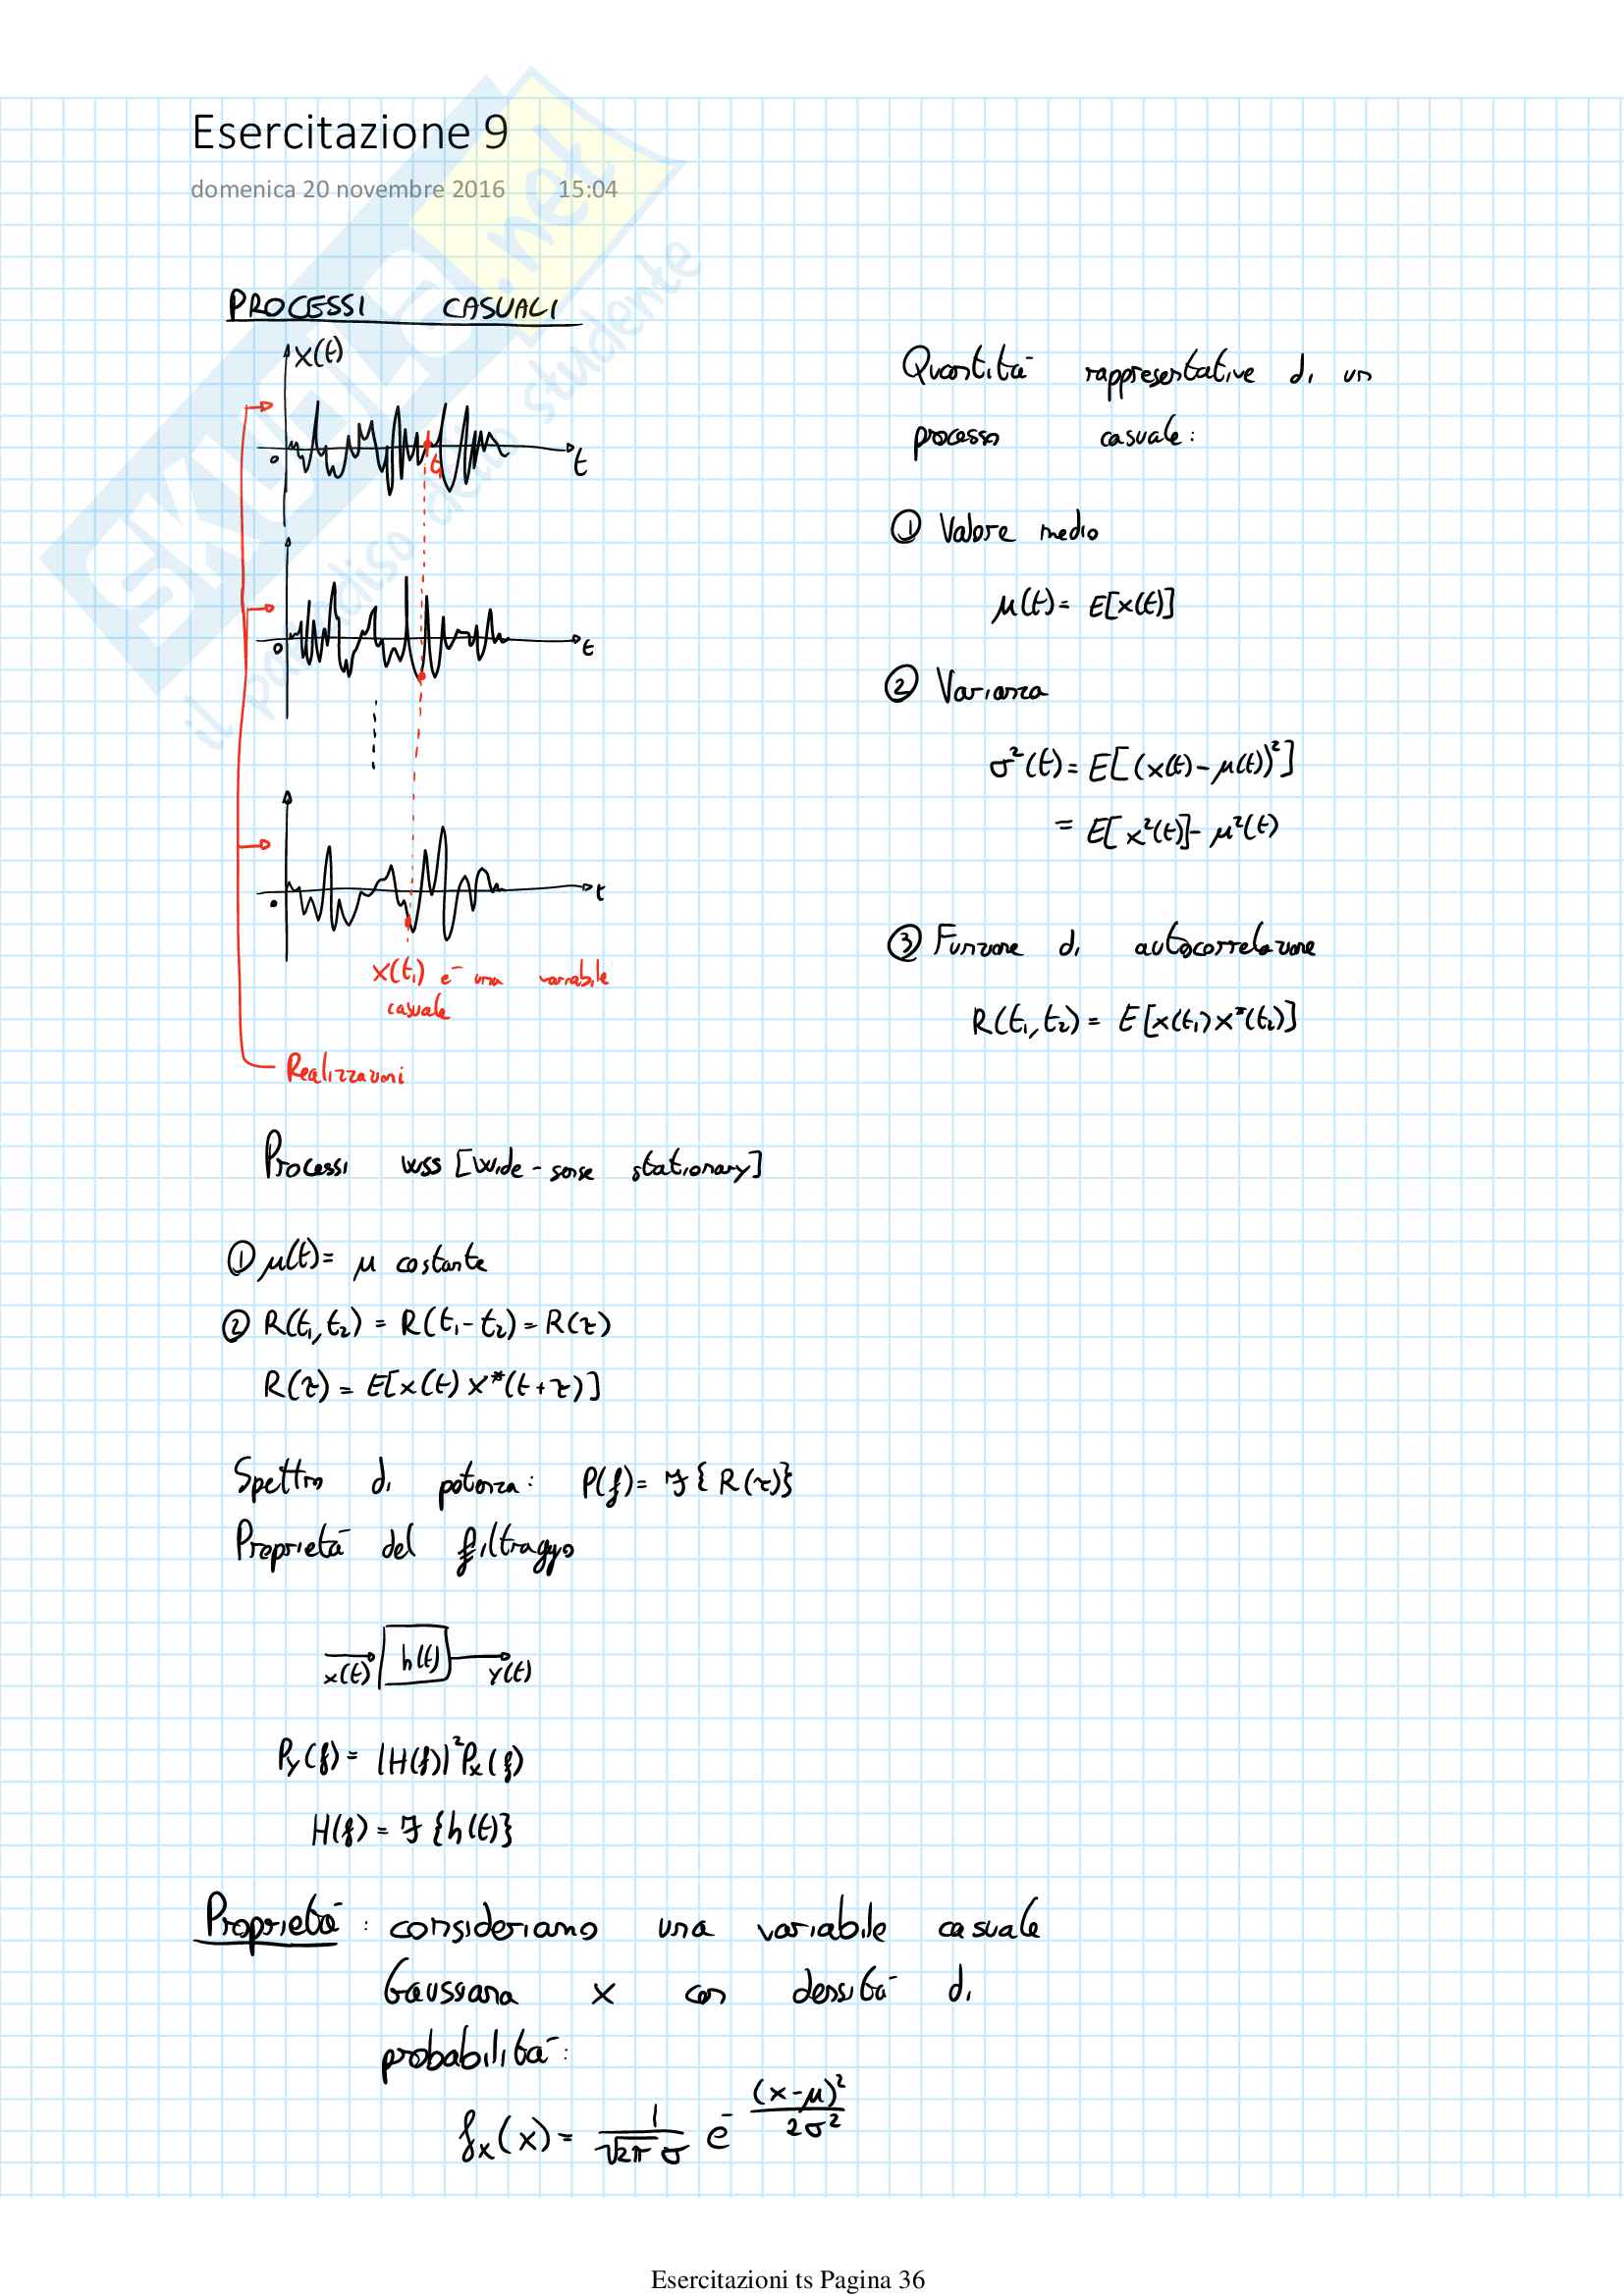 Esercitazione 9
domenica 20 novembre 2016 15:04
PROCESSI CASUALI
x(t)
t₁
0 t
0 t
0 t
x(t₁) è una variabile
casuale
Realizzazioni
Quantità rappresentative di un
processo casuale:
① Valore medio
μ(t) = E[x(t)]
② Varianza
σ²(t) = E[(x(t) - μ(t))²]
= E[x²(t)] - μ²(t)
③ Funzione di autocorrelazione
R(t₁, t₂) = E[x(t₁) x*(t₂)]
Processi WSS [Wide-sense stationary]
① μ(t) = μ costante
② R(t₁, t₂) = R(t₁ - t₂) = R(τ)
R(τ) = E[x(t) x*(t+τ)]
Spettro di potenza: P(f) = F{R(τ)}
Proprietà del filtraggio
x(t) h(t) Y(t)
Py(f) = |H(f)|² Px(f)
H(f) = F{h(t)}
Proprietà: consideriamo una variabile casuale
Gaussiana x con densità di
probabilità:
fx(x) = 1/(√2π σ) e^-(x-μ)²/2σ²
Esercitazioni ts Pagina 36
SKUOLA.net
il paradiso dello studente